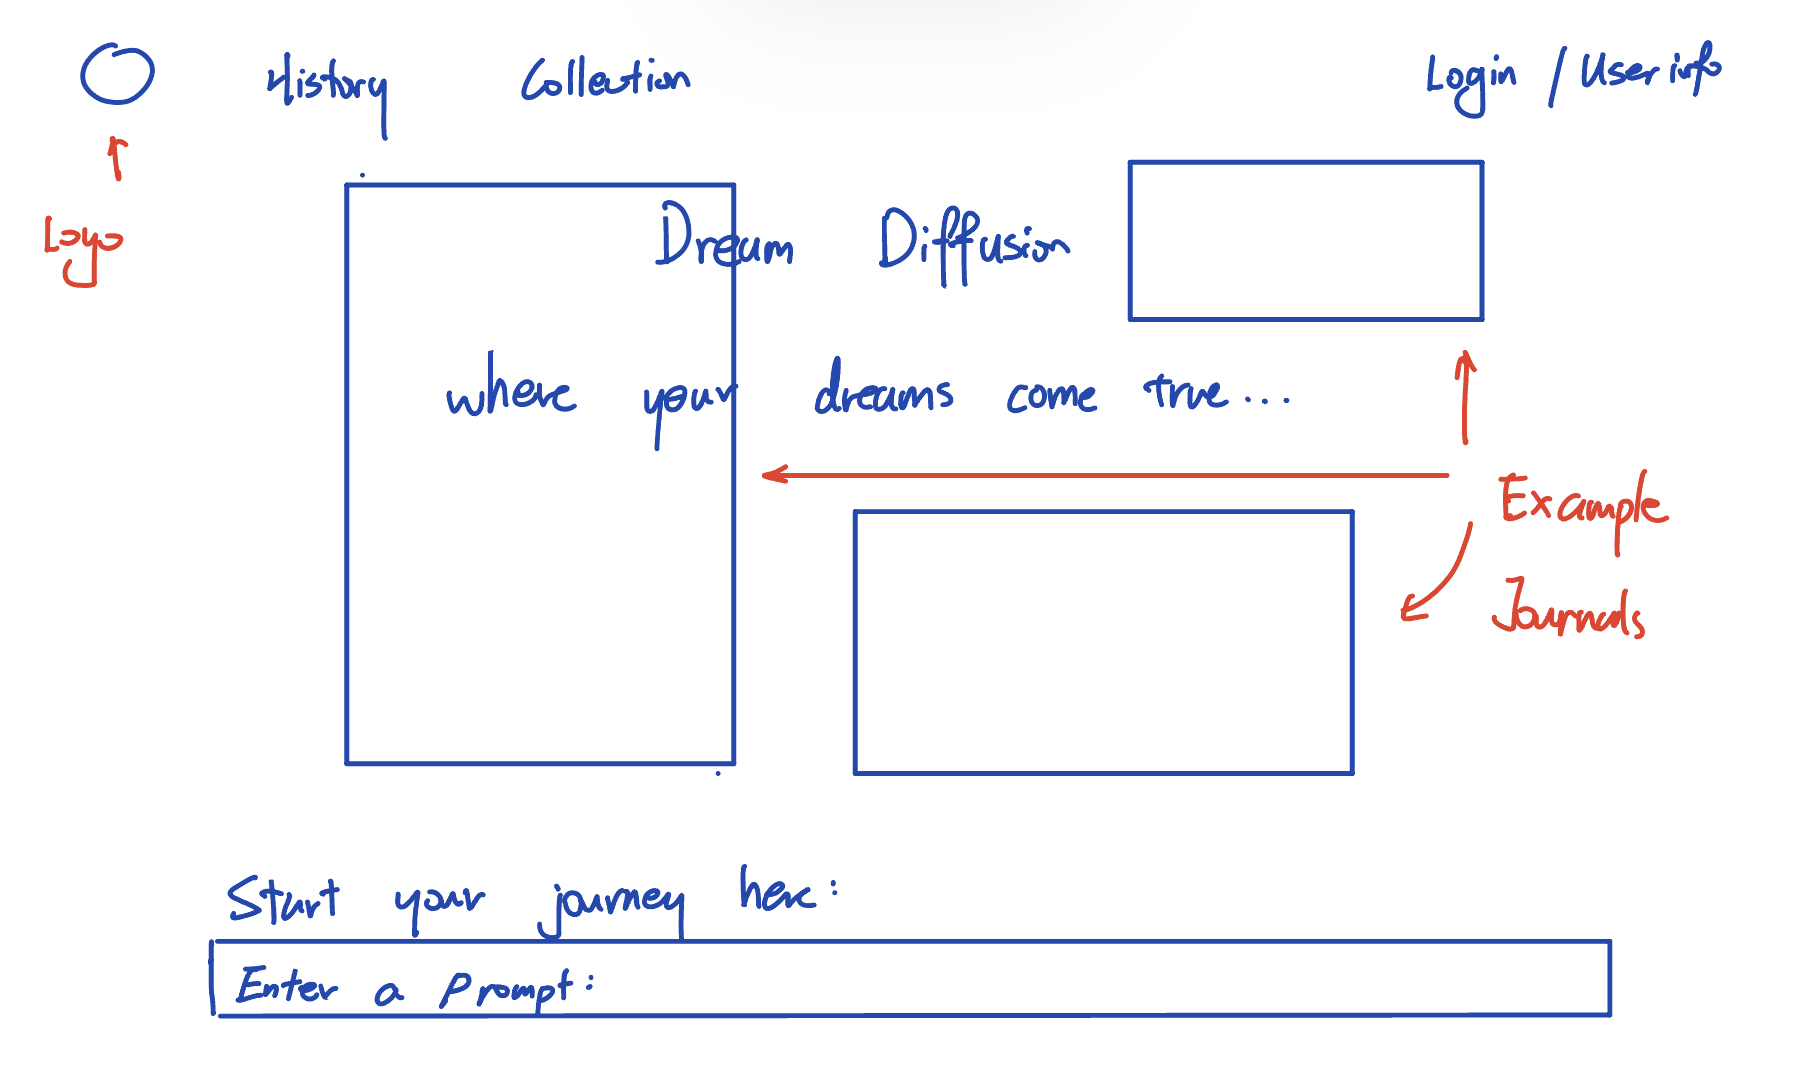 History Collection Login / User info
Logo
Dream Diffusion
where your dreams come true...
Example
Journals
Start your journey here:
Enter a Prompt: